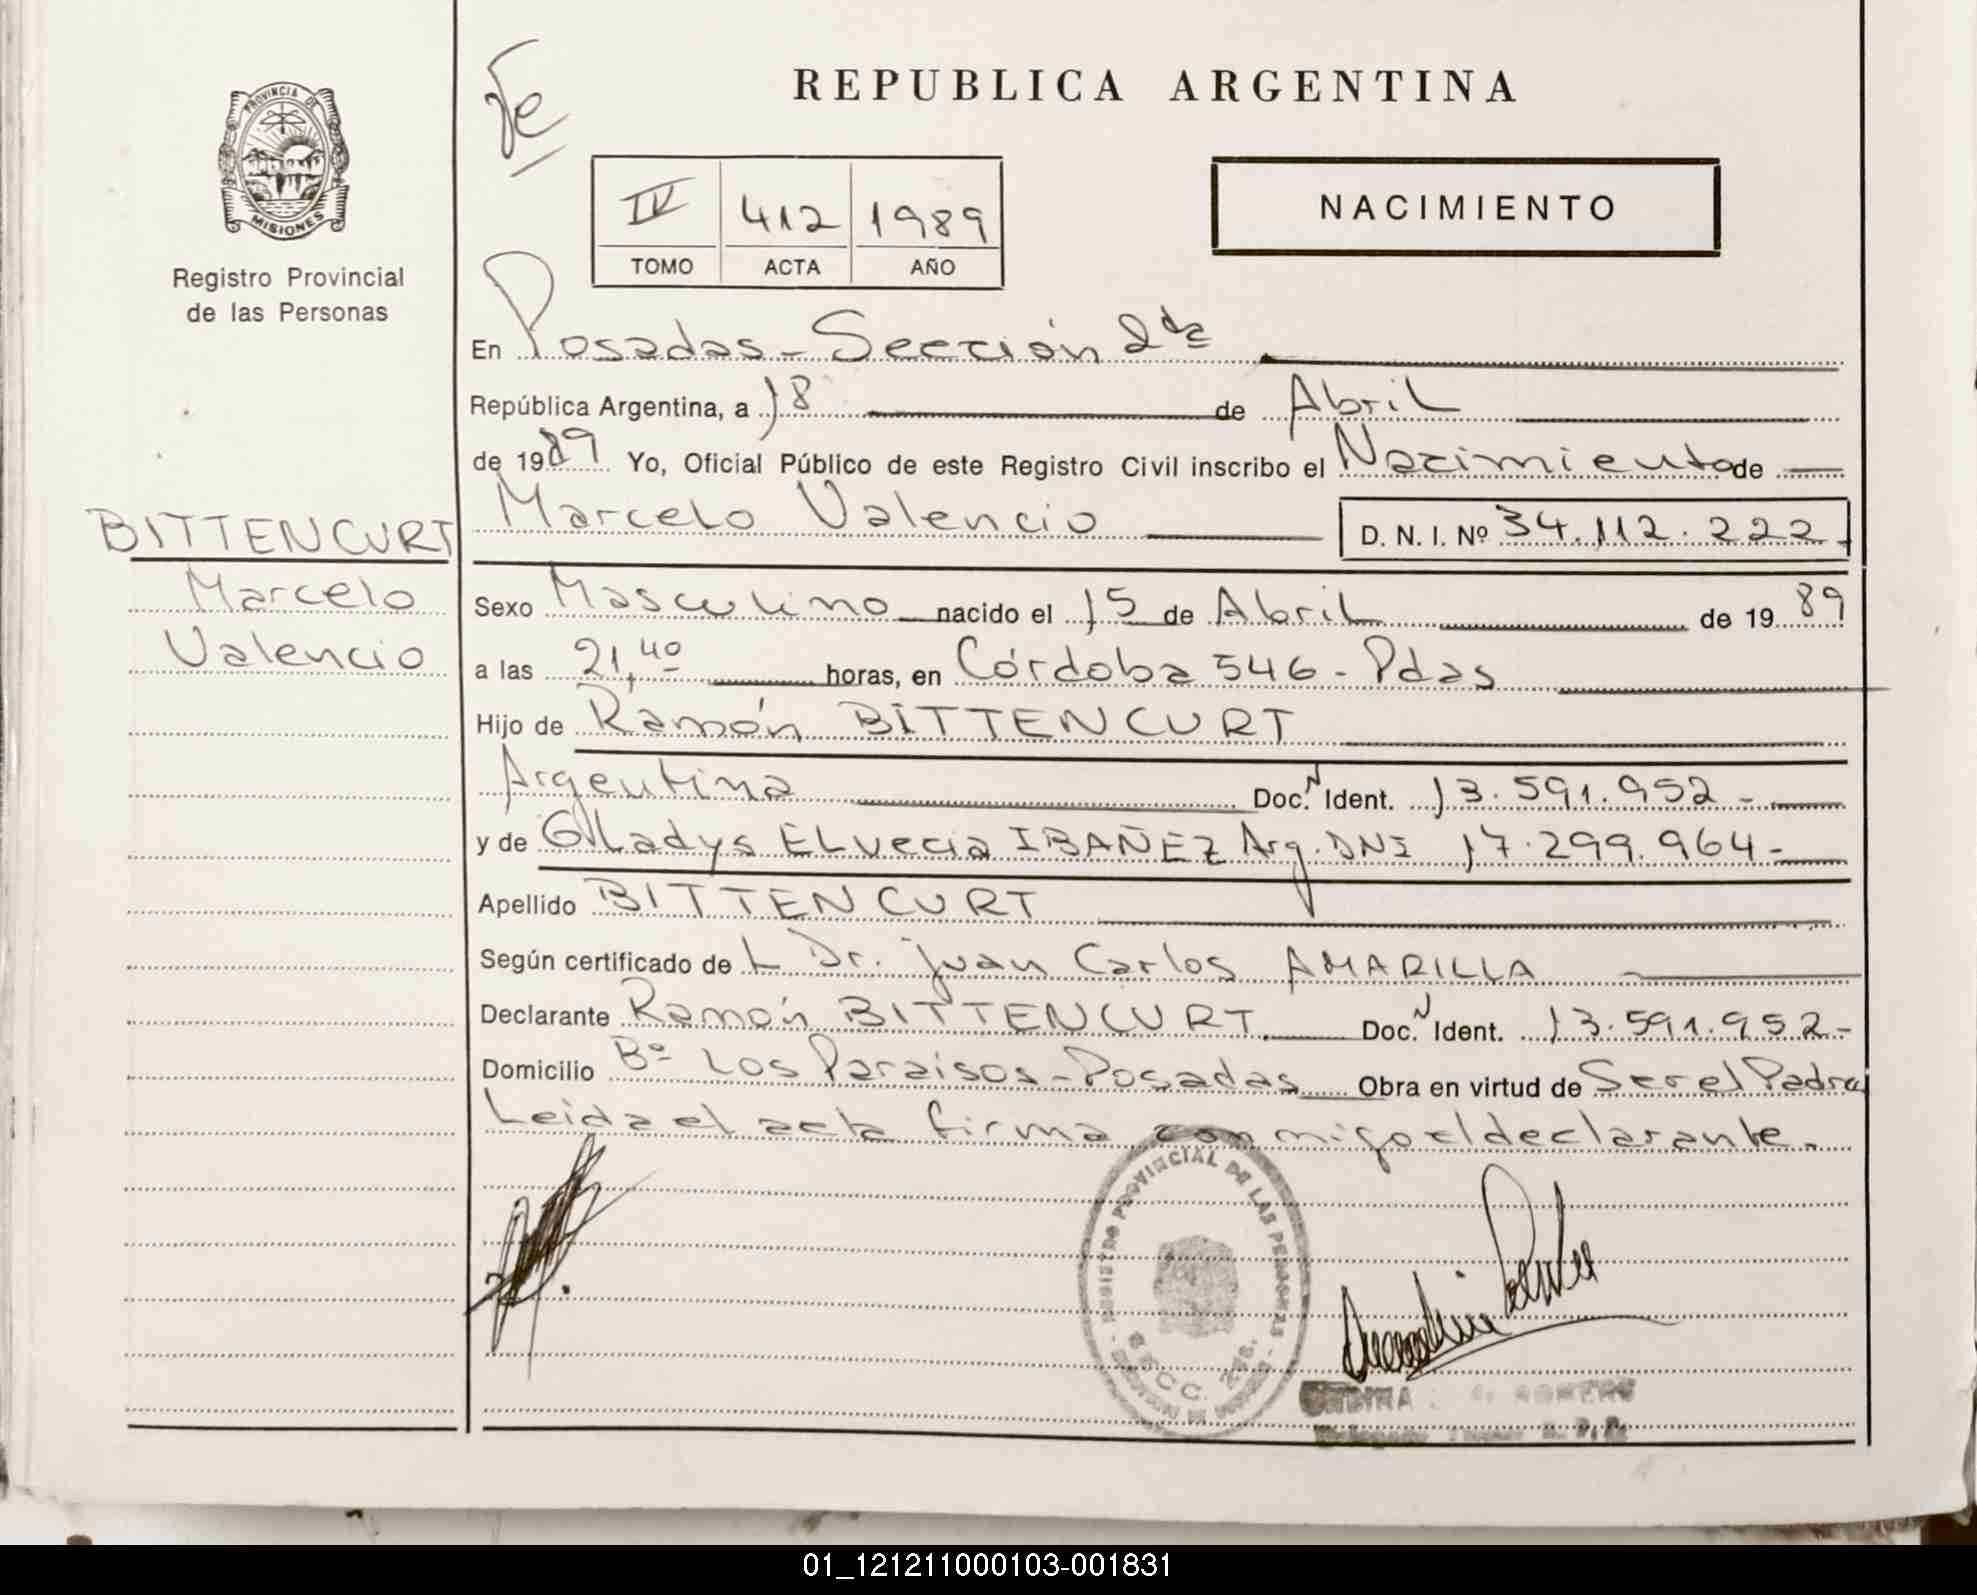 REPUBLICA ARGENTINA
PROVINCIA DE
MISIONES
Registro Provincial
de las Personas
IV 412 1989
TOMO ACTA AÑO
NACIMIENTO
En Posadas - Sección 2da
República Argentina, a 18 de Abril
de 1989 Yo, Oficial Público de este Registro Civil inscribo el Nacimiento de
Marcelo Valencio D. N. I. Nº 34.112.222
BITTENCURT
Marcelo
Valencio
Sexo Masculino nacido el 15 de Abril de 1989
a las 21,40 horas, en Córdoba 546 - Pdas
Hijo de Ramón BITTENCURT
Argentina Doc. N Ident. 13.591.952 -
y de Gladys Elvecia IBAÑEZ Arg. DNI 17.299.964 -
Apellido BITTENCURT
Según certificado de L Dr. Juan Carlos AMARILLA
Declarante Ramón BITTENCURT Doc. N Ident. 13.591.952 -
Domicilio Bº Los Paraisos - Posadas Obra en virtud de Ser el Padre
Leida el acta firma conmigo el declarante.
REGISTRO PROVINCIAL DE LAS PERSONAS
ROMERO
01_121211000103-001831